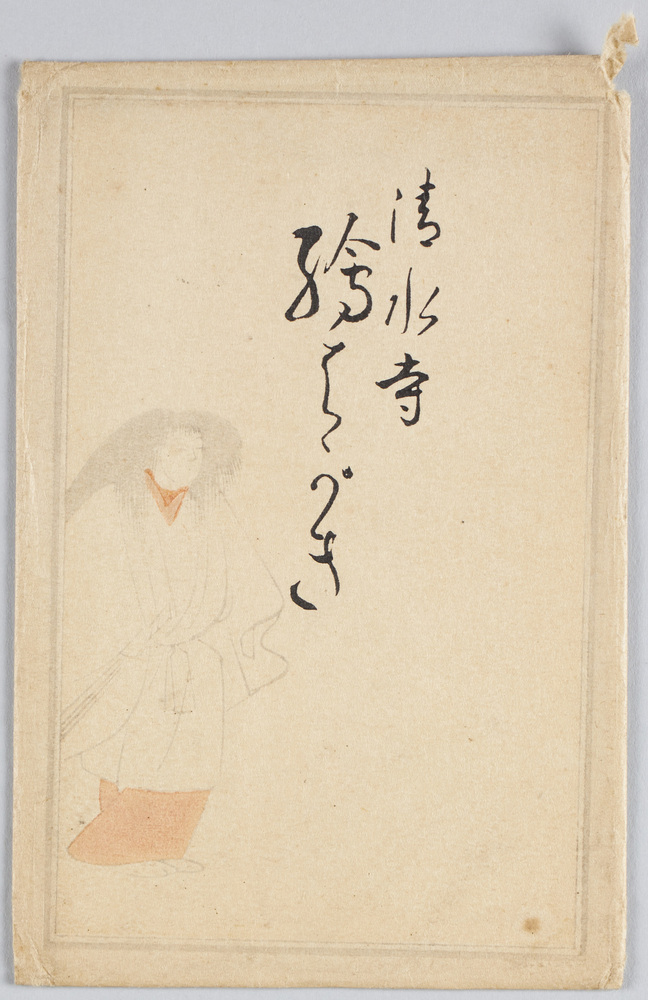 清水寺
繪はがき